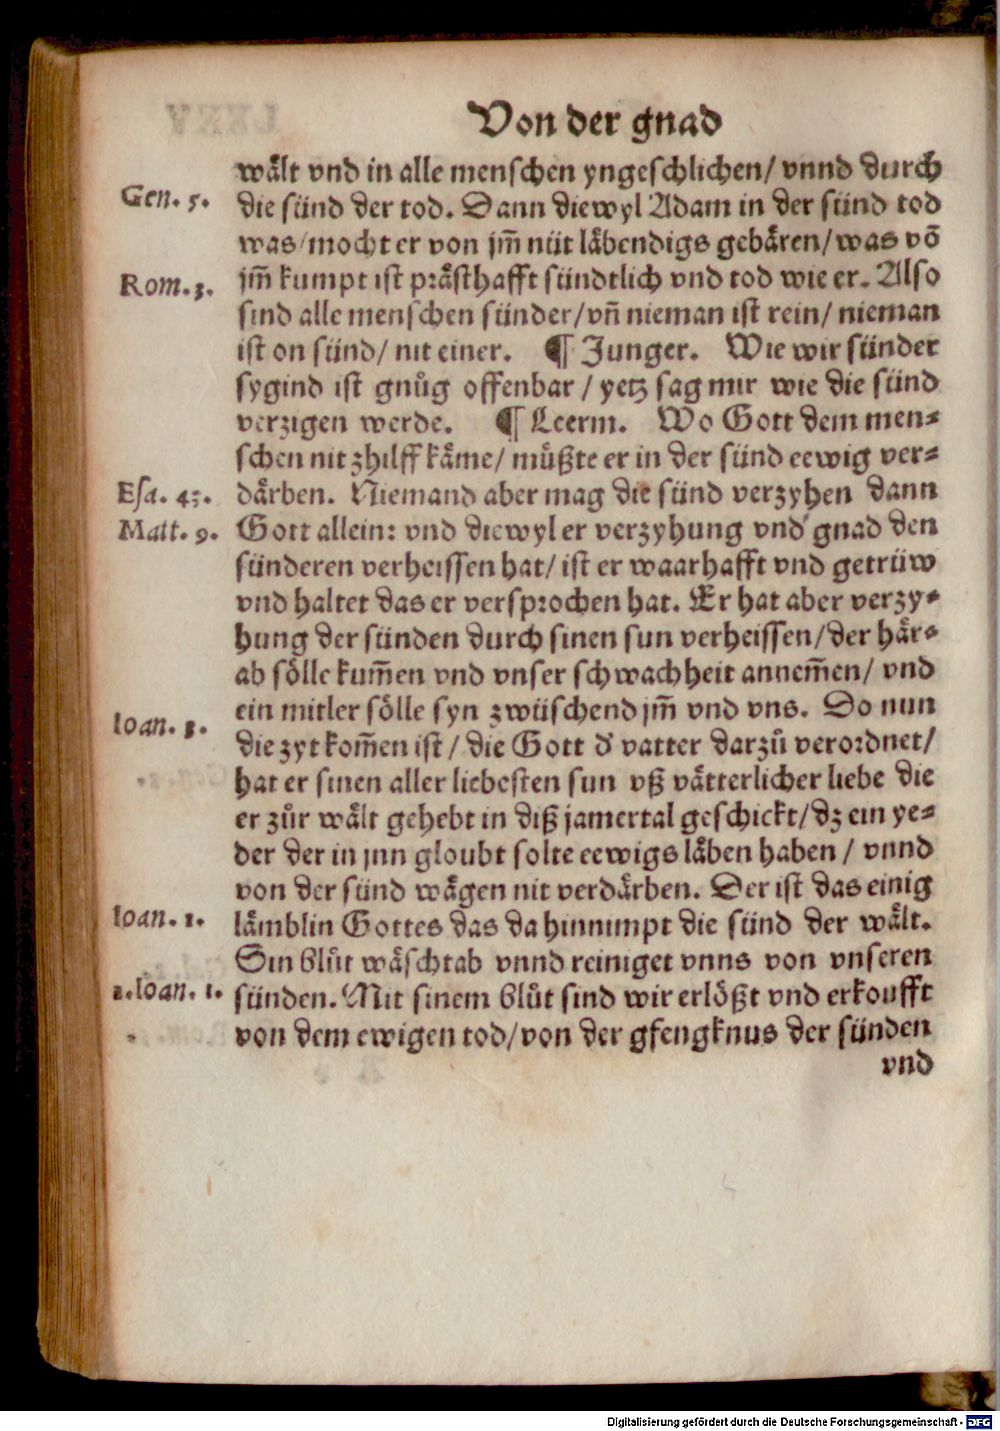 Von der gnad
wält vnd in alle menschen yngeschlichen/ vnnd durch
Gen. 5.
die sünd der tod. Dann diewyl Adam in der sünd tod
was/mocht er von jm̃ nüt läbendigs gebären/was võ
Rom.3.
jm̃ kumpt ist prästhafft sündtlich vnd tod wie er. Also
sind alle menschen sünder/vñ nieman ist rein/ nieman
ist on sünd/ nit einer. ¶ Junger. Wie wir sünder
sygind ist gnůg offenbar / yetz sag mir wie die sünd
verzigen werde. ¶ Leerm. Wo Gott dem men⸗
schen nit zhilff käme/ müßte er in der sünd eewig ver⸗
Esa. 43.
därben. Niemand aber mag die sünd verzyhen dann
Matt. 9.
Gott allein: vnd diewyl er verzyhung vnd gnad den
sünderen verheissen hat/ ist er waarhafft vnd getrüw
vnd haltet das er versprochen hat. Er hat aber verzy⸗
hung der sünden durch sinen sun verheissen/der här⸗
ab sölle kum̃en vnd vnser schwachheit annem̃en/ vnd
ein mitler sölle syn zwüschend jm̃ vnd vns. Do nun
Ioan. 3.
die zyt kom̃en ist / die Gott d' vatter darzů verordnet/
hat er sinen aller liebesten sun vß vätterlicher liebe die
er zůr wält gehebt in diß jamertal geschickt/dz ein ye⸗
der der in jnn gloubt solte eewigs läben haben / vnnd
von der sünd wägen nit verdärben. Der ist das einig
Ioan. 1.
lämblin Gottes das da hinnimpt die sünd der wält.
Sin blůt wäschtab vnnd reiniget vnns von vnseren
1.Ioan. 1.
sünden. Mit sinem blůt sind wir erlößt vnd erkoufft
von dem ewigen tod/von der gfengknus der sünden
vnd
Digitalisierung gefördert durch die Deutsche Forschungsgemeinschaft - DFG